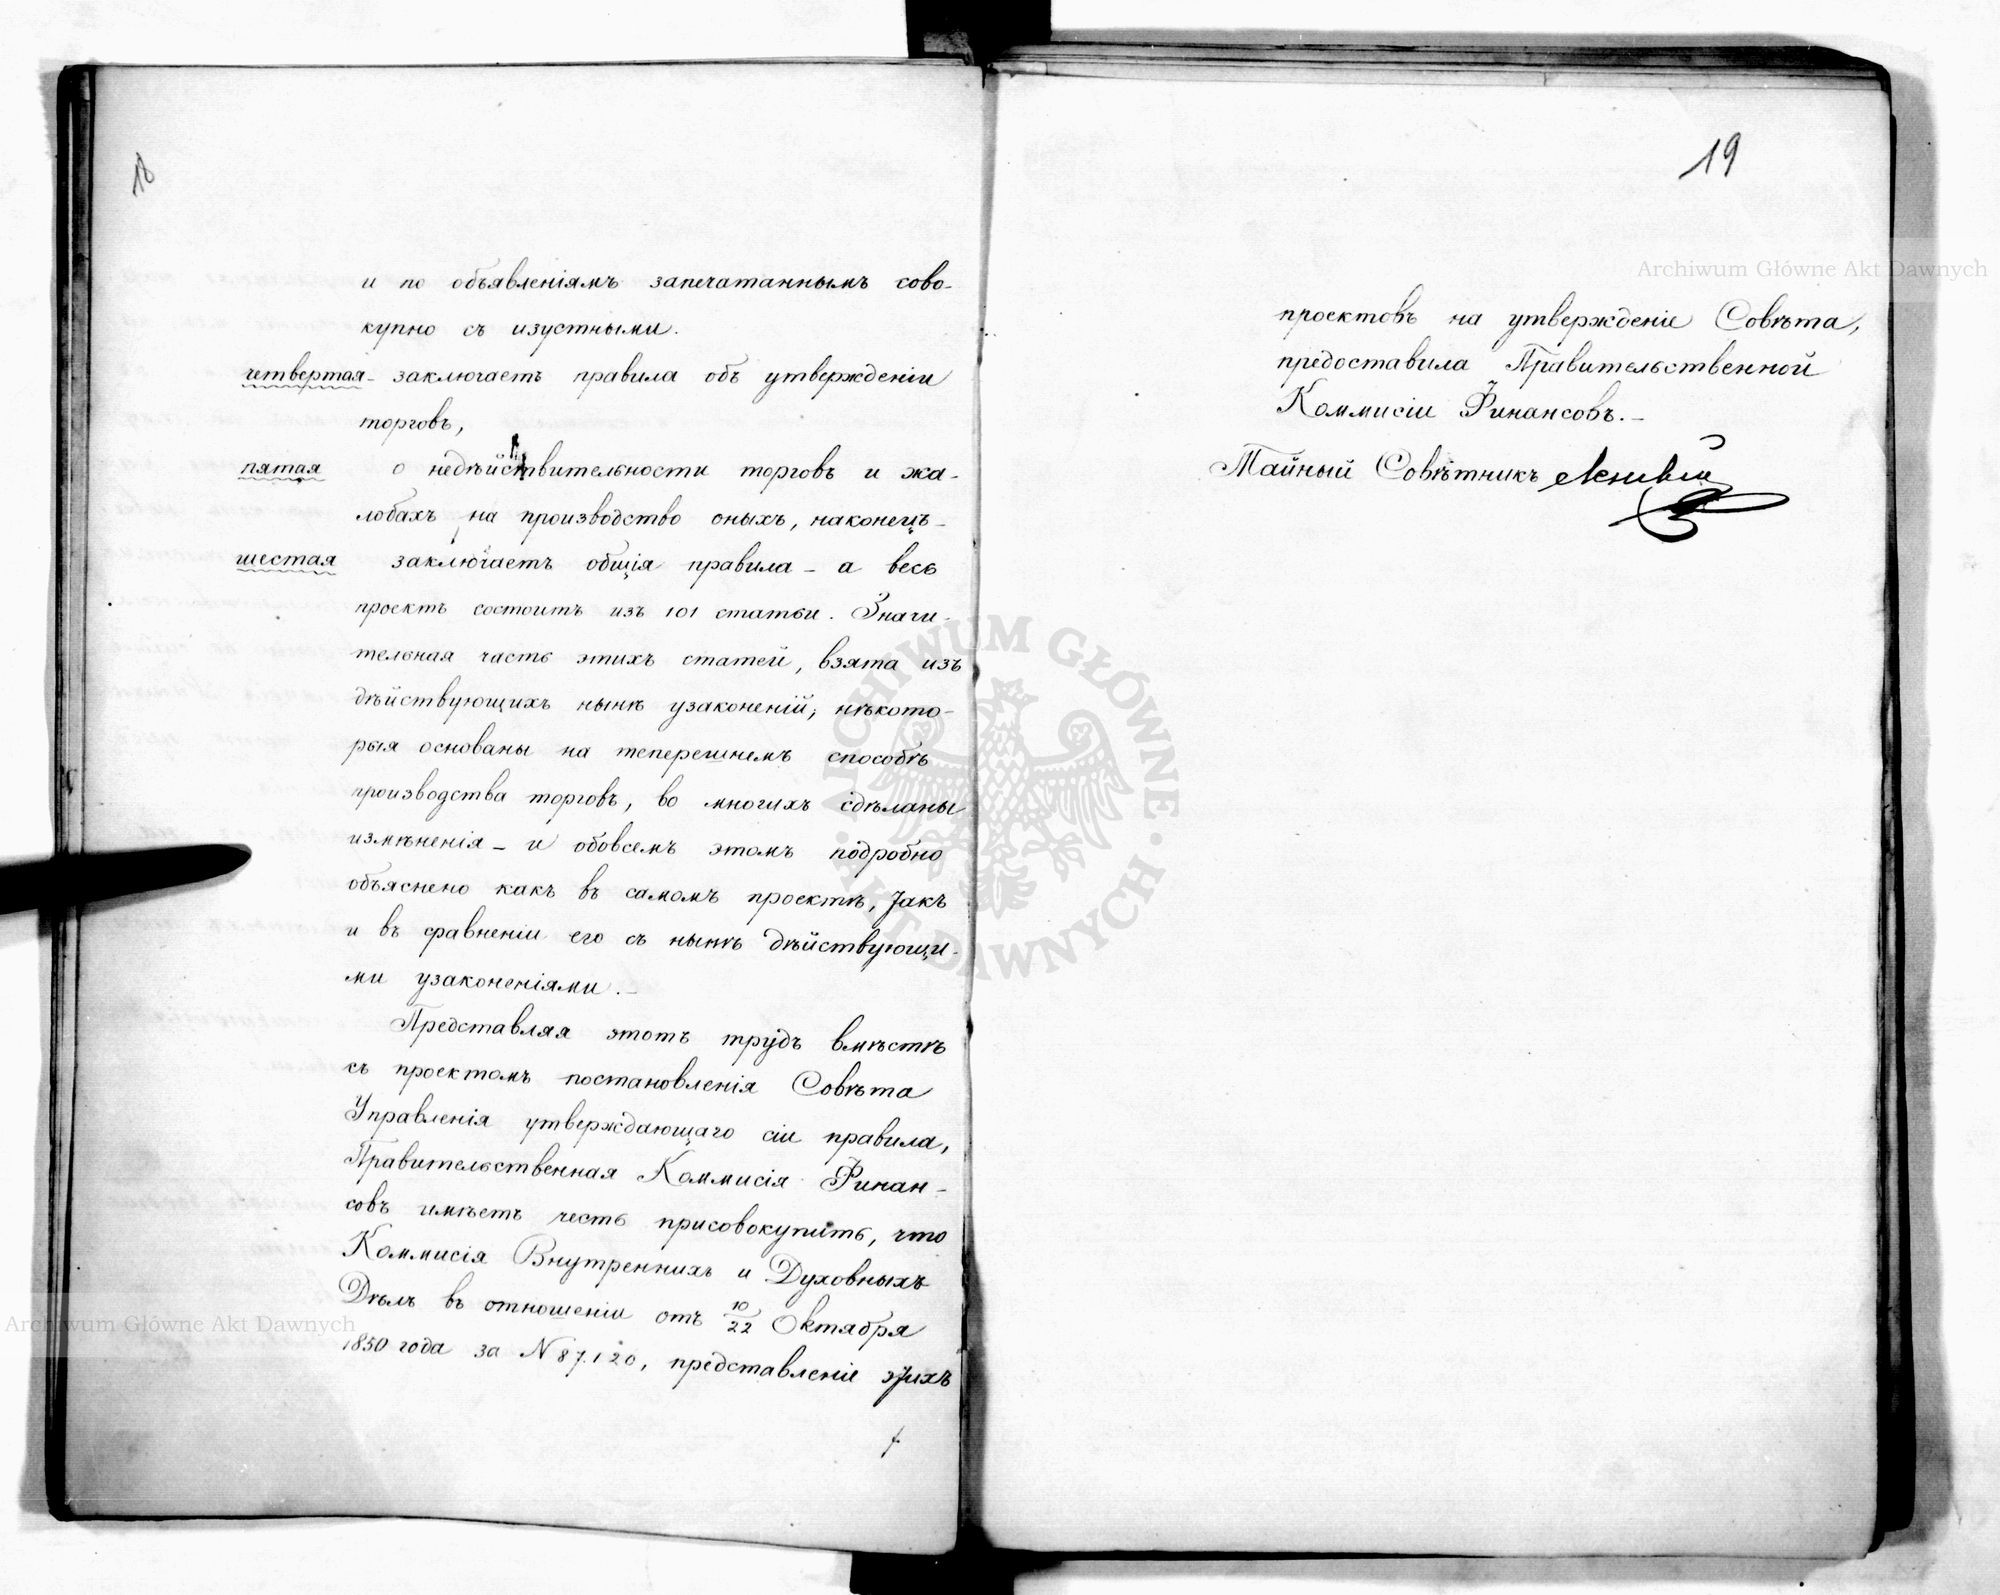 18
и по объявленіямъ запечатаннымъ сово-
купно съ изустными.
четвертая - заключаетъ правила объ утвержденіи
торговъ,
пятая о недѣйствительности торговъ и жа-
лобахъ на производство оныхъ, наконецъ -
шестая заключаетъ общія правила - а весь
проектъ состоитъ изъ 101 статьи. Значи-
тельная часть этихъ статей, взята изъ
дѣйствующихъ нынѣ узаконеній; нѣкото-
рыя основаны на теперешнемъ способѣ
производства торговъ, во многихъ сдѣланы
измѣненія - и обовсемъ этомъ подробно
объяснено какъ въ самомъ проектѣ, такъ
и въ сравненіи его съ нынѣ дѣйствующи-
ми узаконеніями. -
Представляя этотъ трудъ вмѣстѣ
съ проектомъ постановленія Совѣта
Управленія утверждающаго сіи правила,
Правительственная Коммисія Финан-
совъ имѣетъ честь присовокупить, что
Коммисія Внутреннихъ и Духовныхъ
Дѣлъ въ отношеніи отъ 10/22 Октября
1850 года за N 87.120, представленіе этихъ
19
проектовъ на утвержденіе Совѣта,
предоставила Правительственной
Коммисіи Финансовъ. -
Тайный Совѣтникъ
Archiwum Główne Akt Dawnych
Archiwum Główne Akt Dawnych
ARCHIWUM GŁÓWNE AKT DAWNYCH